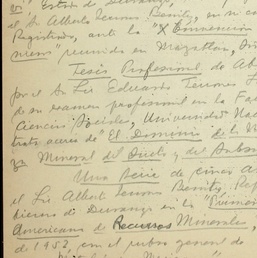 en "Estado de Durango"
el S. Alberto Terrones Benitez, en su c
Registrado, ante la "X Convención
reunido en Mazatlan, Sin
Tesis Profesional de Ab
por el Sr Lic Eduardo Terrones L
de su examen profesional en la Fac
Ciencias Sociales, Universidad Nac
trata acerca de "El Dominio de la N
Mineral del Suelo y del Subs
Una serie de cinco Ar
el Sr Alberto Terrones Benitez, Rep
bierno de Durango en la "Prime
Americana de Recursos Minerales,
de 1952, en el rubro general de